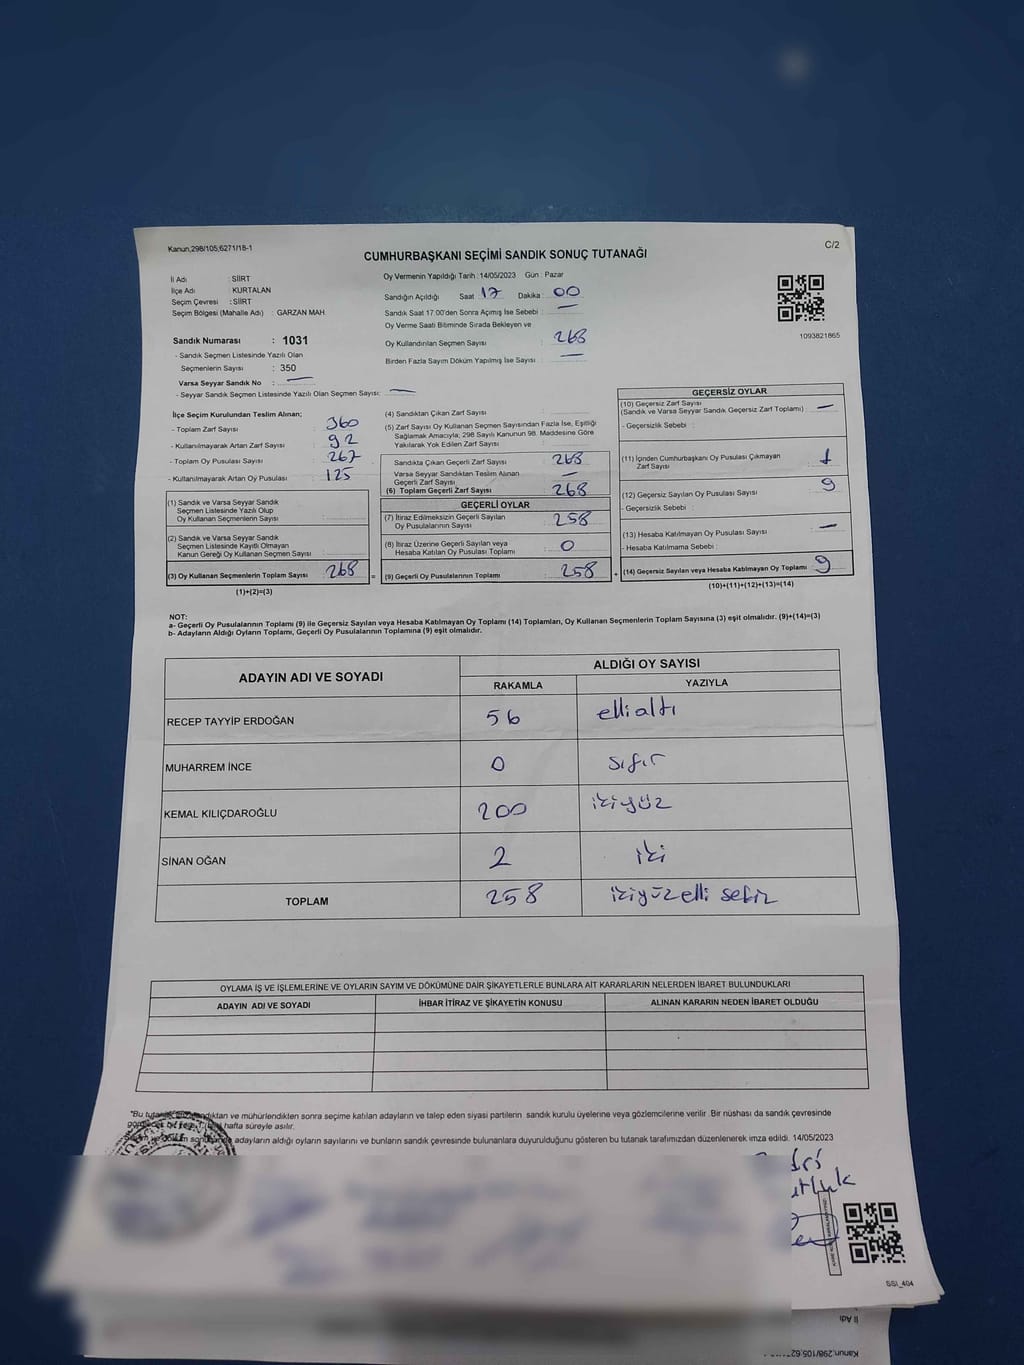 Kanun,298/105,6271/18-1
C/2
CUMHURBAŞKANI SEÇİMİ SANDIK SONUÇ TUTANAĞI
İl Adı : SİİRT
İlçe Adı : KURTALAN
Seçim Çevresi : SİİRT
Seçim Bölgesi (Mahalle Adı) : GARZAN MAH.
Sandık Numarası : 1031
- Sandık Seçmen Listesinde Yazılı Olan
Seçmenlerin Sayısı : 350
Varsa Seyyar Sandık No : —
- Seyyar Sandık Seçmen Listesinde Yazılı Olan Seçmen Sayısı: —
Oy Vermenin Yapıldığı Tarih : 14/05/2023 Gün : Pazar
Sandığın Açıldığı Saat 17 Dakika : 00
Sandık Saat 17:00'den Sonra Açımış İse Sebebi : —
Oy Verme Saati Bitiminde Sırada Bekleyen ve
Oy Kullandırılan Seçmen Sayısı : 268
Birden Fazla Sayım Döküm Yapılmış İse Sayısı : —
1093821865
İlçe Seçim Kurulundan Teslim Alınan;
- Toplam Zarf Sayısı : 360
- Kullanılmayarak Artan Zarf Sayısı : 92
- Toplam Oy Pusulası Sayısı : 267
- Kullanılmayarak Artan Oy Pusulası : 125
(1) Sandık ve Varsa Seyyar Sandık
Seçmen Listesinde Yazılı Olup
Oy Kullanan Seçmenlerin Sayısı :
(2) Sandık ve Varsa Seyyar Sandık
Seçmen Listesinde Kayıtlı Olmayan
Kanun Gereği Oy Kullanan Seçmen Sayısı :
(3) Oy Kullanan Seçmenlerin Toplam Sayısı : 268
(1)+(2)=(3)
(4) Sandıktan Çıkan Zarf Sayısı :
(5) Zarf Sayısı Oy Kullanan Seçmen Sayısından Fazla İse, Eşitliği
Sağlamak Amacıyla; 298 Sayılı Kanunun 98. Maddesine Göre
Yakılarak Yok Edilen Zarf Sayısı :
Sandıkta Çıkan Geçerli Zarf Sayısı : 268
Varsa Seyyar Sandıktan Teslim Alınan
Geçerli Zarf Sayısı : —
(6) Toplam Geçerli Zarf Sayısı : 268
GEÇERLİ OYLAR
(7) İtiraz Edilmeksizin Geçerli Sayılan
Oy Pusulalarının Sayısı : 258
(8) İtiraz Üzerine Geçerli Sayılan veya
Hesaba Katılan Oy Pusulası Toplamı : 0
= (9) Geçerli Oy Pusulalarının Toplamı : 258 +
GEÇERSİZ OYLAR
(10) Geçersiz Zarf Sayısı
(Sandık ve Varsa Seyyar Sandık Geçersiz Zarf Toplamı) : —
- Geçersizlik Sebebi :
(11) İçinden Cumhurbaşkanı Oy Pusulası Çıkmayan
Zarf Sayısı : 1
(12) Geçersiz Sayılan Oy Pusulası Sayısı : 9
- Geçersizlik Sebebi :
(13) Hesaba Katılmayan Oy Pusulası Sayısı : —
- Hesaba Katılmama Sebebi :
(14) Geçersiz Sayılan veya Hesaba Katılmayan Oy Toplamı : 9
(10)+(11)+(12)+(13)=(14)
NOT:
a- Geçerli Oy Pusulalarının Toplamı (9) ile Geçersiz Sayılan veya Hesaba Katılmayan Oy Toplamı (14) Toplamları, Oy Kullanan Seçmenlerin Toplam Sayısına (3) eşit olmalıdır. (9)+(14)=(3)
b- Adayların Aldığı Oyların Toplamı, Geçerli Oy Pusulalarının Toplamına (9) eşit olmalıdır.
ADAYIN ADI VE SOYADI ALDIĞI OY SAYISI
RAKAMLA YAZIYLA
RECEP TAYYİP ERDOĞAN 56 elli altı
MUHARREM İNCE 0 sıfır
KEMAL KILIÇDAROĞLU 200 ikiyüz
SİNAN OĞAN 2 iki
TOPLAM 258 ikiyüz elli sekiz
OYLAMA İŞ VE İŞLEMLERİNE VE OYLARIN SAYIM VE DÖKÜMÜNE DAİR ŞİKAYETLERLE BUNLARA AİT KARARLARIN NELERDEN İBARET BULUNDUKLARI
ADAYIN ADI VE SOYADI İHBAR İTİRAZ VE ŞİKAYETİN KONUSU ALINAN KARARIN NEDEN İBARET OLDUĞU
*Bu ve mühürlendikten sonra seçime katılan adayların ve talep eden siyasi partilerin, sandık kurulu üyelerine veya gözlemcilerine verilir. Bir nüshası da sandık çevresinde
hafta süreyle asılır.
adayların aldığı oyların sayılarını ve bunların sandık çevresinde bulunanlara duyurulduğunu gösteren bu tutanak tarafımızdan düzenlenerek imza edildi. 14/05/2023
SSİ_404
İl Adı
Kanun,298/105,62